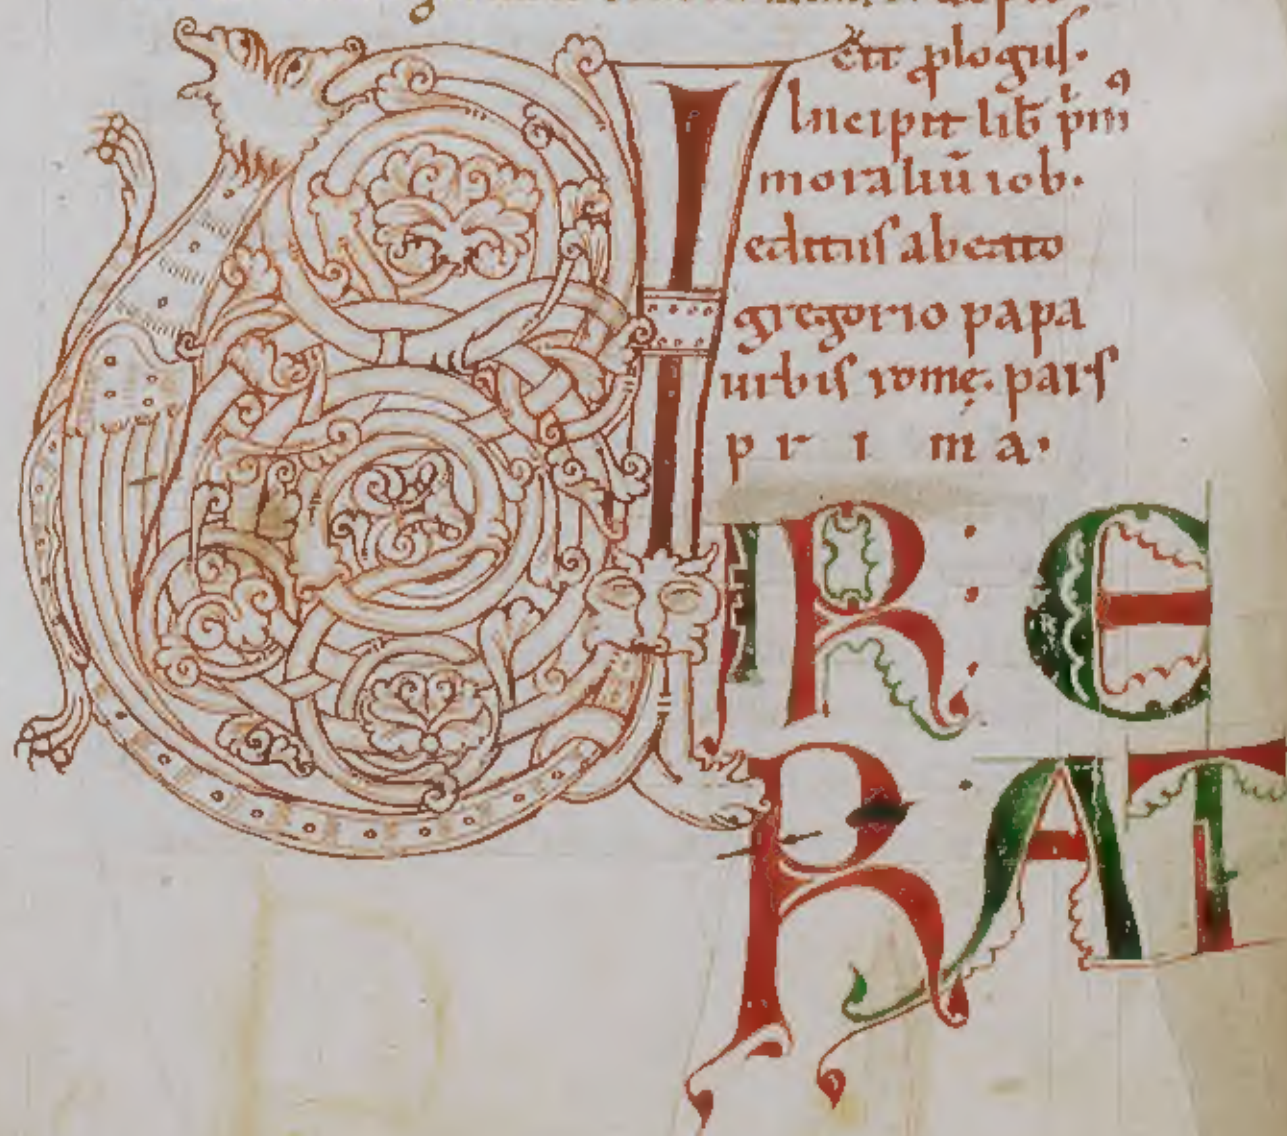 cit plogus.
Incipit lib̄ pͥmꝰ
moraliū iob.
editus a beato
gregorio papa
urbis romę. pars
prima.
VIR: E
RAT